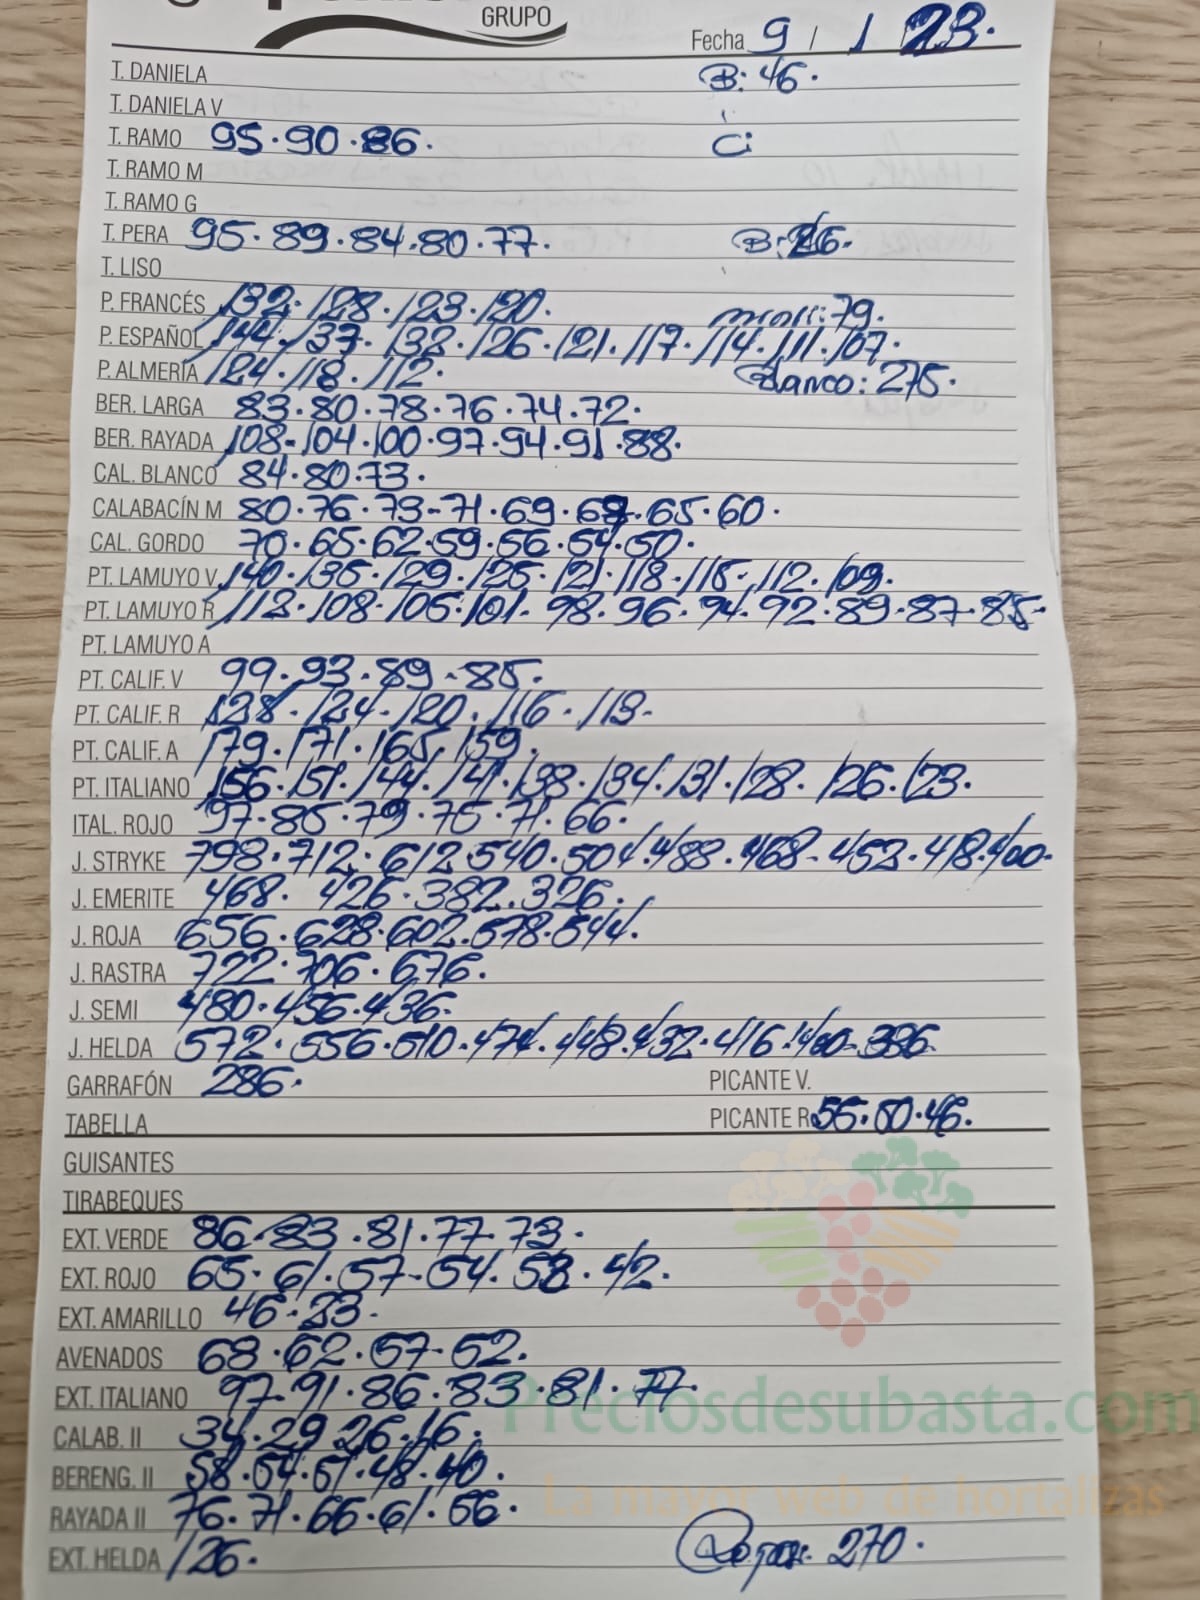 GRUPO
Fecha 9 / 1 23.
T. DANIELA B: 46.
T. DANIELA V
T. RAMO 95.90.86. C:
T. RAMO M
T. RAMO G
T. PERA 95.89.84.80.77. B: 26.
T. LISO
P. FRANCÉS 132.128.123.120. mini: 79.
P. ESPAÑOL 144.137.132.126.121.117.114.111.107.
P. ALMERÍA 124.118.112. Blanco: 275.
BER. LARGA 83.80.78.76.74.72.
BER. RAYADA 108-104.100.97.94.91.88.
CAL. BLANCO 84.80.73.
CALABACÍN M 80.76.73-71.69.67.65.60.
CAL. GORDO 70.65.62.59.56.54.50.
PT. LAMUYO V 140.135.129.125.121.118.115.112.109.
PT. LAMUYO R 113.108.105.101.98.96.94.92.89.87.85.
PT. LAMUYO A
PT. CALIF. V 99.93.89.85.
PT. CALIF. R 128.124.120.116.113-
PT. CALIF. A 179.171.165.159.
PT. ITALIANO 156.151.144.141.138.134.131.128.126.123.
ITAL. ROJO 97.85.79.75.71.66.
J. STRYKE 798.712.612.540.504.488.468-453.418.400.
J. EMERITE 468.426.382.326.
J. ROJA 656.628.602.578.544.
J. RASTRA 722.706.676.
J. SEMI 480.456.436.
J. HELDA 572.556.510.474.448.432.416.400-386
GARRAFÓN 286. PICANTE V.
TABELLA PICANTE R. 55.50.46.
GUISANTES
TIRABEQUES
EXT. VERDE 86.83.81.77.73.
EXT. ROJO 65.61.57-54.42.
EXT. AMARILLO 46.33.
AVENADOS 68.62.57-52.
EXT. ITALIANO 97.91.86.83.81.77.
Preciosdesubasta.com
CALAB. II 34.29.26.16.
BERENG. II 58.54.51.48.40.
La mayor web de hortalizas
RAYADA II 76.71.66.61.56.
EXT. HELDA 126. 270.